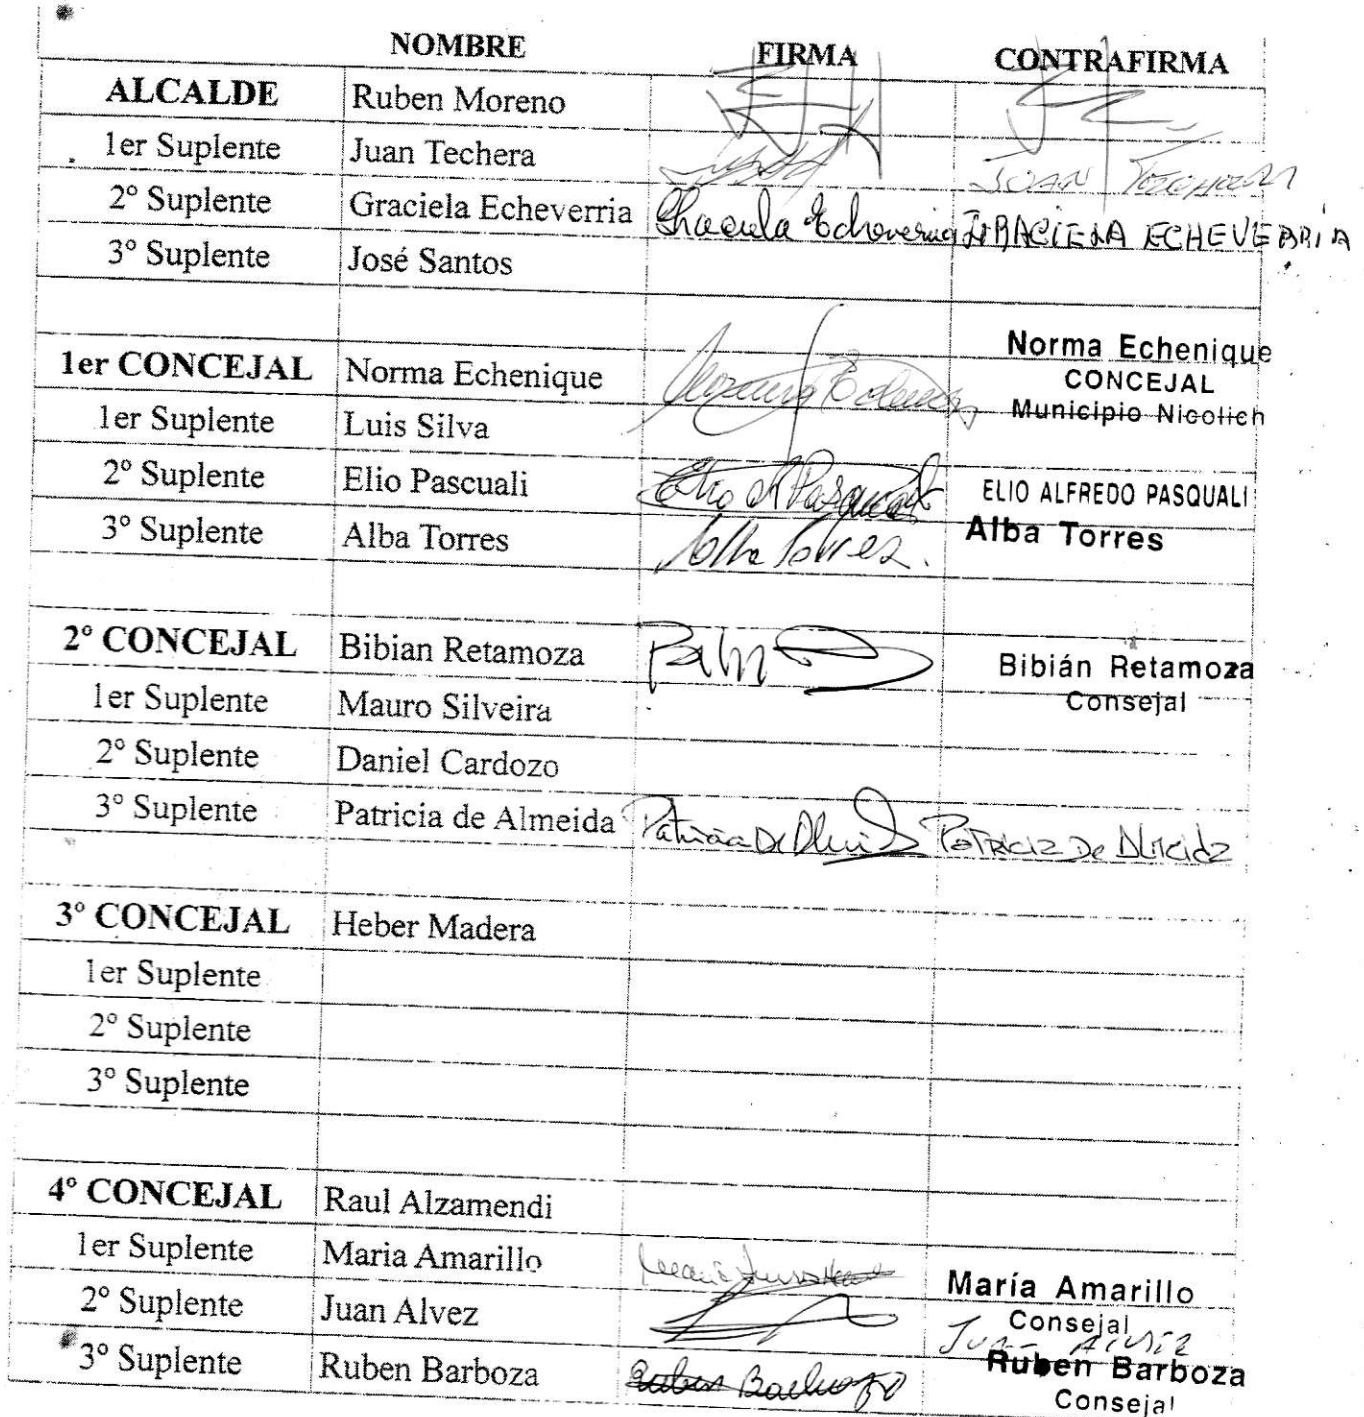 NOMBRE FIRMA CONTRAFIRMA
ALCALDE Ruben Moreno
1er Suplente Juan Techera JUAN
2º Suplente Graciela Echeverria Echeverria GRACIELA ECHEVERRIA
3º Suplente José Santos
1er CONCEJAL Norma Echenique Norma Echenique
CONCEJAL
Municipio Nicolich
1er Suplente Luis Silva
2º Suplente Elio Pascuali Elio A Pasquali ELIO ALFREDO PASQUALI
3º Suplente Alba Torres Alba Torres. Alba Torres
2º CONCEJAL Bibian Retamoza Bibián Retamoza
Consejal
1er Suplente Mauro Silveira
2º Suplente Daniel Cardozo
3º Suplente Patricia de Almeida Patricia De Patricia De Almeida
3º CONCEJAL Heber Madera
1er Suplente
2º Suplente
3º Suplente
4º CONCEJAL Raul Alzamendi
1er Suplente Maria Amarillo María Amarillo
Consejal
2º Suplente Juan Alvez Juan Alvez
3º Suplente Ruben Barboza Ruben Barbozo Ruben Barboza
Consejal